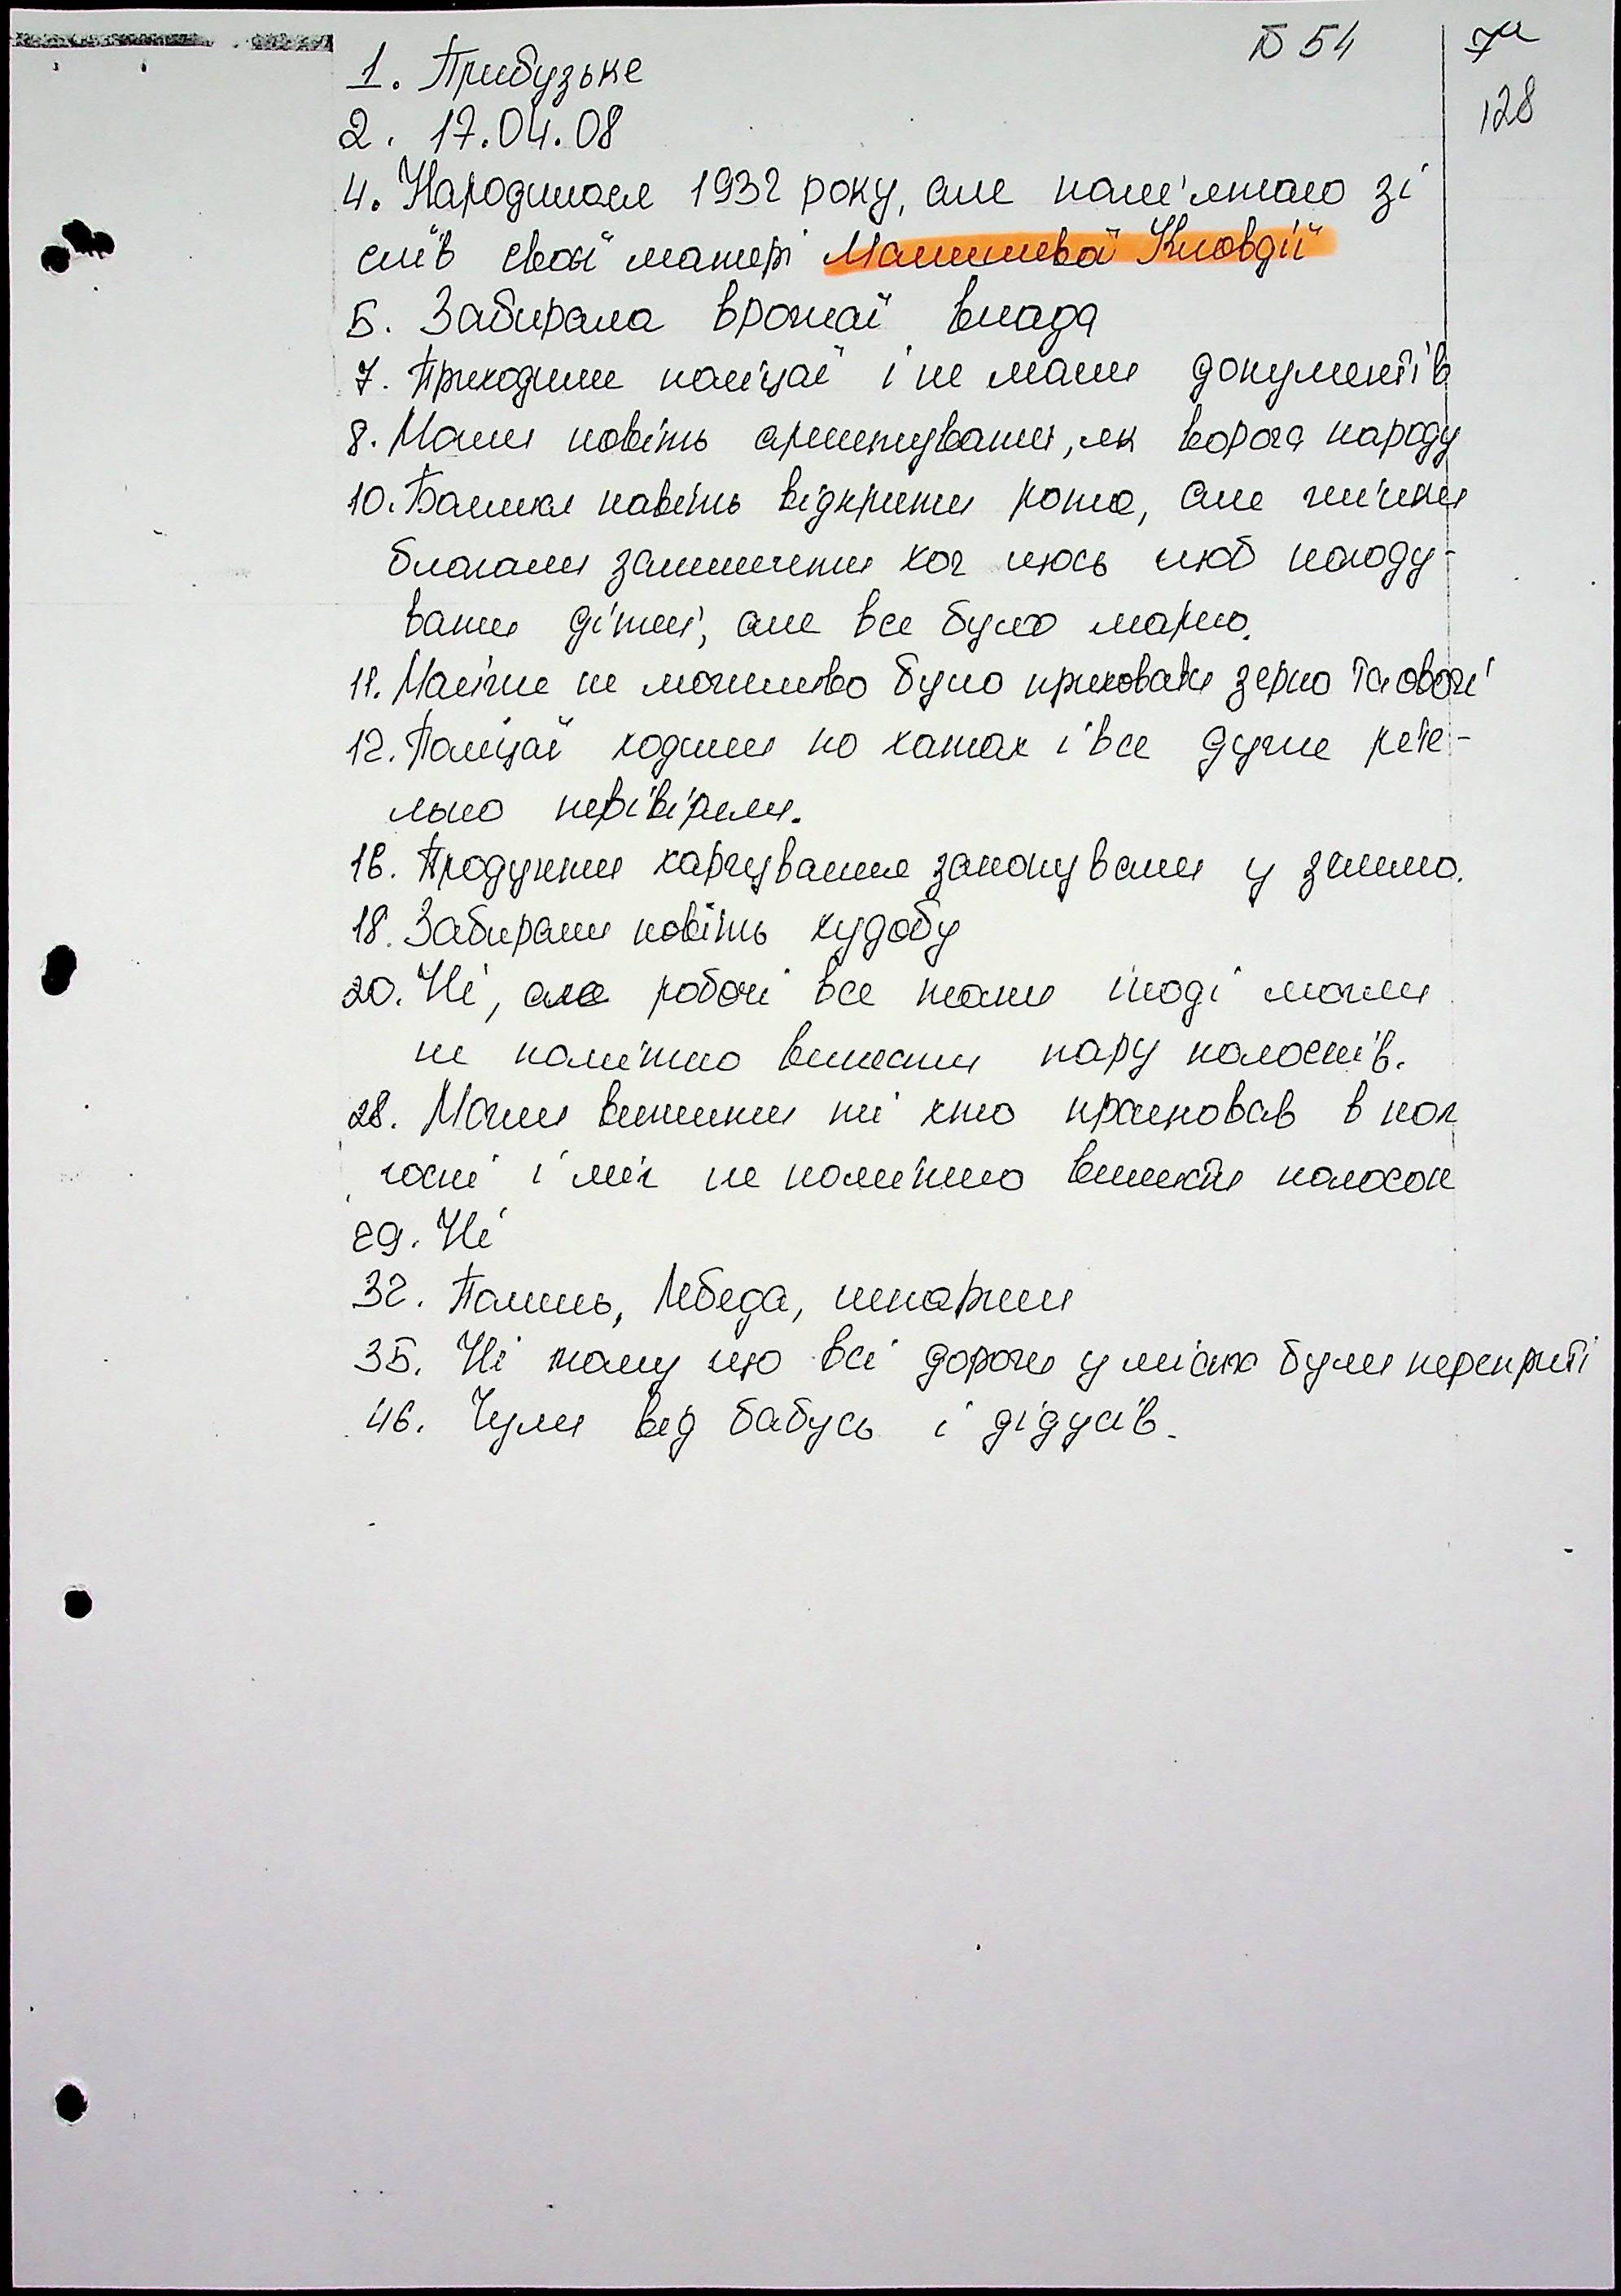 № 54
128
1. Прибузьке
2. 17.04.08
4. Народилася 1932 року, але пам'ятаю зі
слів своєї матері Малишевої Клавдії
5. Забирала врожаї влада
7. Приходили поліцаї і не мали документів
8. Мали навіть арештувати, як ворога народу
10. Боялися навіть відкрити рота, але жінки
благали залишити хоч щось щоб нагоду-
вати дітей, але все було марно.
11. Майже не можливо було приховати зерно та овочі
12. Поліцаї ходили по хатах і все дуже рете-
льно перівіряли.
16. Продукти харчування закопували у землю.
18. Забирали навіть худобу
20. Ні, але робочі все таки іноді могли
не помітно винести пару колосків.
28. Могли вижити ті хто працював в кол
госпі і міг не помітно винести колосок
29. Ні
32. Полинь, Лебеда, шкарпи
35. Ні тому що всі дороги у місто були перекриті
46. Чули від бабусь і дідусів.